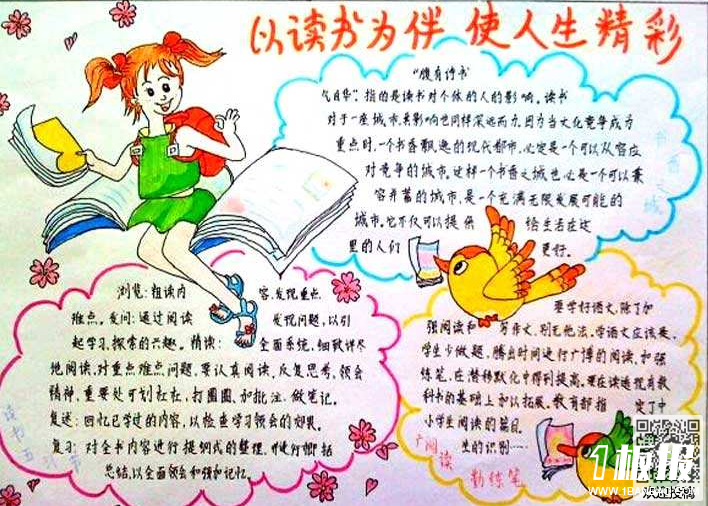 以读书为伴 使人生精彩
“腹有诗书
气自华”,指的是读书对个体的人的影响。读书
对于一座城市来影响也同样深远而力,因为当文化竞争成为
重点时,一个书香飘逸的现代都市,必定是一个可以从容应
对竞争的城市,这样一个书香之城也必是一个可以兼
容并蓄的城市,是一个充满无限发展可能的
城市,它不仅可以提供 给生活在这
里的人们 更好。
书香之城
浏览:粗读内 容,发现重点
难点。发问:通过阅读 发现问题,以引
起学习,探索的兴趣。精读: 全面系统,细致详尽
地阅读,对重点难点问题,要认真阅读,反复思考,领会
精神,重要处可划杠杠,打圈圈,加批注,做笔记。
复述:回忆已学过的内容,以检查学习领会的效果。
复习:对全书内容进行提纲式的整理,并进行概括
总结,以全面领会和强加记忆。
读书五环节
要学好语文,除了加
强阅读和 写作文,别无他法,学语文应该是,
学生少做题,腾出时间进行广博的阅读,加强
练笔,在潜移默化中得到提高。要在读透现有教
科书的基础上加以拓展。教育部指 定了中
小学生阅读的篇目
生的识别……
广阅读
勤练笔
1板报
WWW.1BANBAO.COM
欢迎投稿